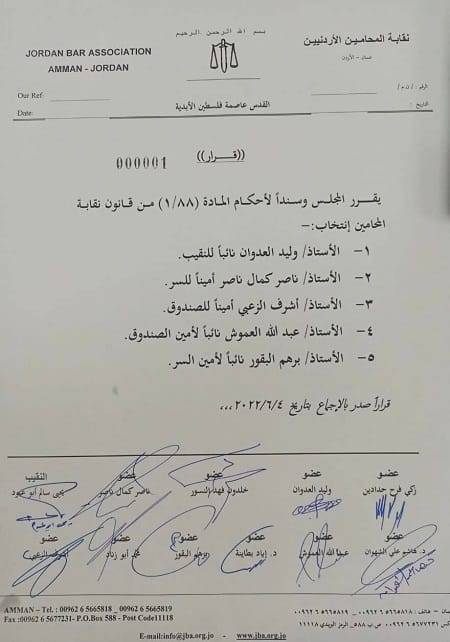 بسم الله الرحمن الرحيم
JORDAN BAR ASSOCIATION
AMMAN - JORDAN
نقابة المحامين الأردنيين
عمان - الأردن
Our Ref:
Date:
القدس عاصمة فلسطين الأبدية
الرقم :
التاريخ :
((قرار)) 000001
يقرر المجلس وسنداً لأحكام المادة (١/٨٨) من قانون نقابة
المحامين إنتخاب:-
١- الأستاذ/ وليد العدوان نائباً للنقيب.
٢- الأستاذ/ ناصر كمال ناصر أميناً للسر.
٣- الأستاذ/ أشرف الزعبي أميناً للصندوق.
٤- الأستاذ/ عبد الله العموش نائباً لأمين الصندوق.
٥- الأستاذ/ برهم البقور نائباً لأمين السر.
قراراً صدر بالإجماع بتاريخ ٢٠٢٢/٦/٤ ،،،
عضو عضو عضو عضو النقيب
زكي فرح حدادين وليد العدوان خلدون فهد النسور ناصر كمال ناصر يحيى سالم أبو عبود
عضو عضو عضو عضو عضو عضو
د. هاشم علي الشهوان عبد الله العموش د. إياد بطاينة برهم البقور أبو زناد الزعبي
AMMAN – Tel. : 00962 6 5665818 _ 00962 6 5665819
Fax :00962 6 5677231- P.O.Box 588 - Post Code11118
عمان - هاتف : ٥٦٦٥٨١٨ ٦ ٠٠٩٦٢ _ ٥٦٦٥٨١٩ ٦ ٠٠٩٦٢
فاكس : ٥٦٧٧٢٣١ ٦ ٠٠٩٦٢ ص. ب ٥٨٨ الرمز البريدي ١١١١٨
E-mail:info@jba.org.jo - www.jba.org.jo